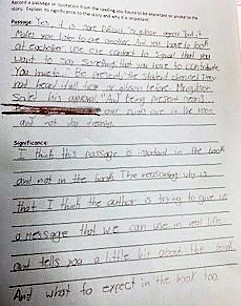 Record a passage or quotation from the reading you found to be important or pivotal to the
story. Explain its significance to the story and why it is important.
Passage: Yes, it is more
makes you listen to one another, but you have to look
at eachother, use eye contact to signal that you
want to say something, that you have to contribute.
You have to be present, the student
not heard it all before.
said being present means
your in the room
and not
Significance:
I think this passage is important in the book
and not in the book. The reasoning why is
that I think the author is trying to give us
a message that we can use in real life
and tells you a little bit about the book
And what to expect in the book too.